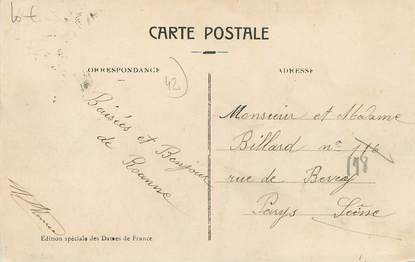 lot
CARTE POSTALE
CORRESPONDANCE
ADRESSE
42
Baisers et Bonjour
de Roanne
Monsieur et Madame
Billard n° 116
198
rue de Bercy
Parys Seine
Edition spéciale des Dames de France